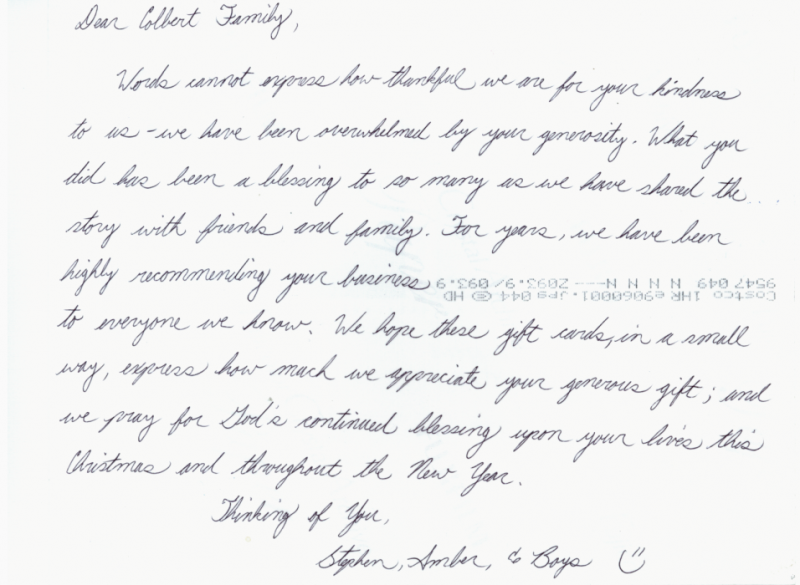 Dear Colbert Family,
Words cannot express how thankful we are for your kindness
to us - we have been overwhelmed by your generosity. What you
did has been a blessing to so many as we have shared the
story with friends and family. For years, we have been
highly recommending your business
to everyone we know. We hope these gift cards, in a small
way, express how much we appreciate your generous gift; and
we pray for God's continued blessing upon your lives this
Christmas and throughout the New Year.
Thinking of You,
Stephen, Amber, & Boys
Costco 1HR e9060001.jps 044 © HD
9547 049 N N N N N--- 2093.9/ 093.9